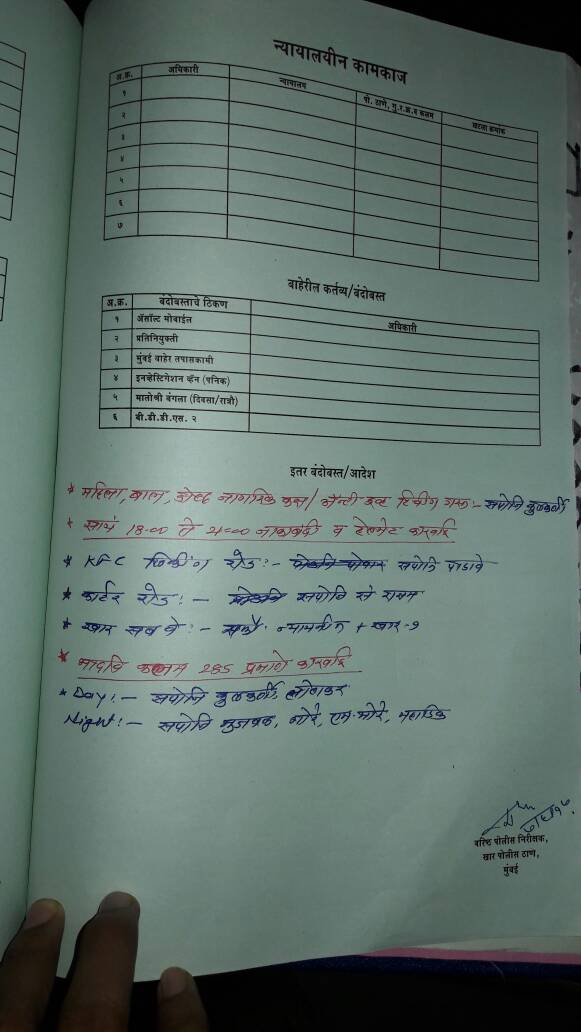 न्यायालयीन कामकाज
अ.क्र. अधिकारी न्यायालय पो. ठाणे, गु.र.क्र.व कलम खटला क्रमांक
१
२
३
४
५
६
७
बाहेरील कर्तव्य/बंदोबस्त
अ.क्र. बंदोबस्ताचे ठिकाण अधिकारी
१ ॲसॉल्ट मोबाईल
२ प्रतिनियुक्ती
३ मुंबई बाहेर तपासकामी
४ इनव्हेस्टिगेशन व्हॅन (पनिक)
५ मातोश्री बंगला (दिवसा/रात्री)
६ बी.डी.डी.एस. २
इतर बंदोबस्त/आदेश
* महिला, बाल, जेष्ठ नागरिक कक्ष/ ॲन्टी इव्ह टिझींग :- सपोनि कुळकर्णी
* सायं 18.00 ते 21.00 नाकाबंदी व हेल्मेट कारवाई
* KFC लिंकींग रोड :- सपोनि
* कार्टर रोड :- सपोनि
* खार सब वे :- + खार-१
* भादवि कलम 285 प्रमाणे कारवाई
* Day :- सपोनि कुळकर्णी,
Night :- सपोनि भुजबळ, मोरे, एम.मोरे, महाडिक
वरिष्ठ पोलीस निरीक्षक,
खार पोलीस ठाणे,
मुंबई